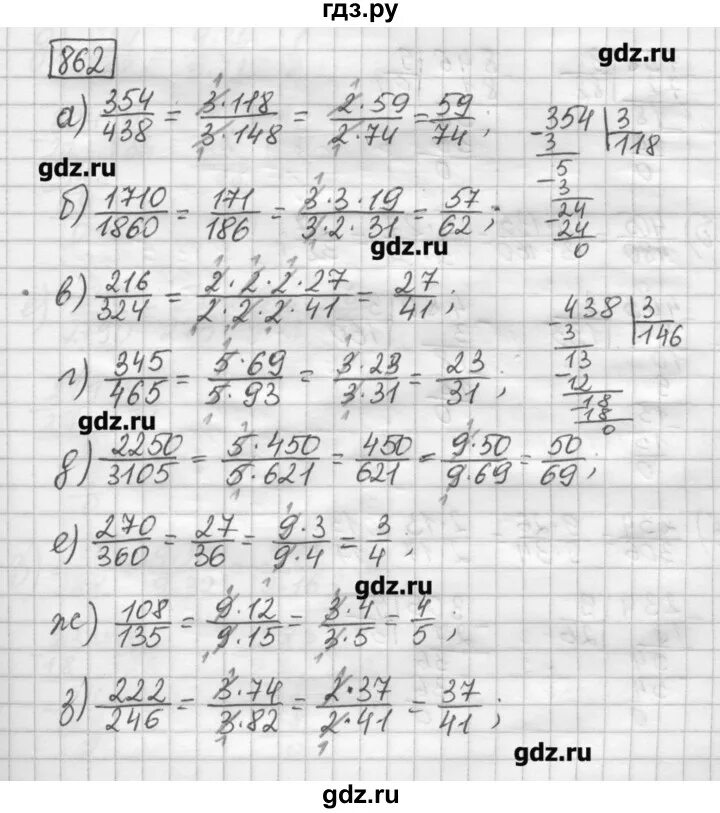 гдз.ру
862
gdz.ru
а) 354/438 = 3·118/3·148 = 2·59/2·74 = 59/74;
354 | 3
3 118
5
3
24
24
0
gdz.ru
б) 1710/1860 = 171/186 = 3·3·19/3·2·31 = 57/62;
gdz.ru
в) 216/324 = 2·2·2·27/2·2·2·41 = 27/41;
438 | 3
3 146
13
12
18
18
0
г) 345/465 = 5·69/5·93 = 3·23/3·31 = 23/31;
gdz.ru
д) 2250/3105 = 5·450/5·621 = 450/621 = 9·50/9·69 = 50/69;
е) 270/360 = 27/36 = 9·3/9·4 = 3/4;
gdz.ru
ж) 108/135 = 9·12/9·15 = 3·4/3·5 = 4/5;
з) 222/246 = 3·74/3·82 = 2·37/2·41 = 37/41;
gdz.ru
gdz.ru